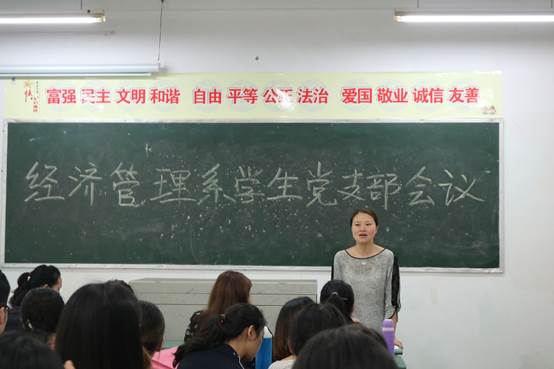 富强 民主 文明 和谐 自由 平等 公正 法治 爱国 敬业 诚信 友善
经济管理系学生党支部会议